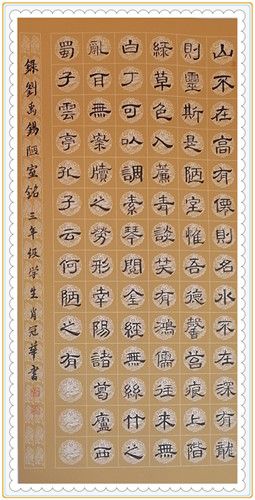 山不在高有僊則名水不在深有龍
則靈斯是陋室惟吾德馨苔痕上階
綠草色入簾青談笑有鴻儒往來無
白丁可以調素琴閱金經無絲竹之
亂耳無案牘之勞形南陽諸葛廬西
蜀子雲亭孔子云何陋之有
錄劉禹錫陋室銘 三年級学生肖冠華書